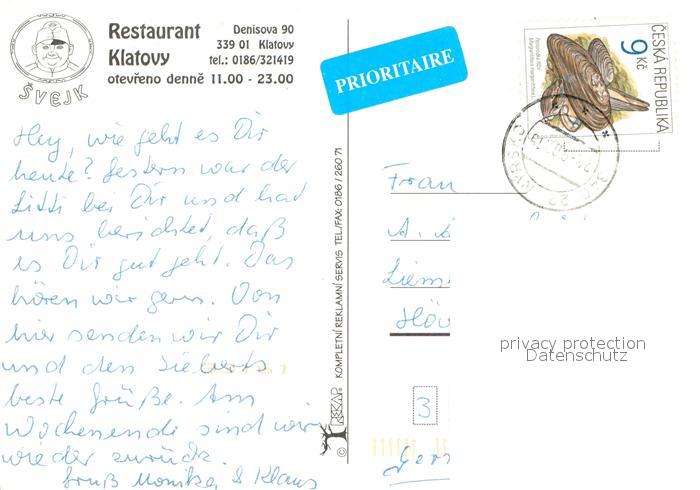 ŠVEJK
Restaurant
Klatovy
Denisova 90
339 01 Klatovy
tel.: 0186/321419
otevřeno denně 11.00 - 23.00
PRIORITAIRE
ČESKÁ REPUBLIKA
9 Kč
Hey, wie geht es Dir
heute? Gestern war der
bei Dir und hat
uns berichtet, daß
es Dir gut geht. Das
hören wir gern. Von
hier senden wir Dir
und den Sieberts
beste Grüße. Am
Wochenende sind wir
wieder zurück.
Gruß Monika & Klaus
KOMPLETNÍ REKLAMNÍ SERVIS TEL/FAX: 0186 / 260 71
Frau
A.
3
privacy protection
Datenschutz